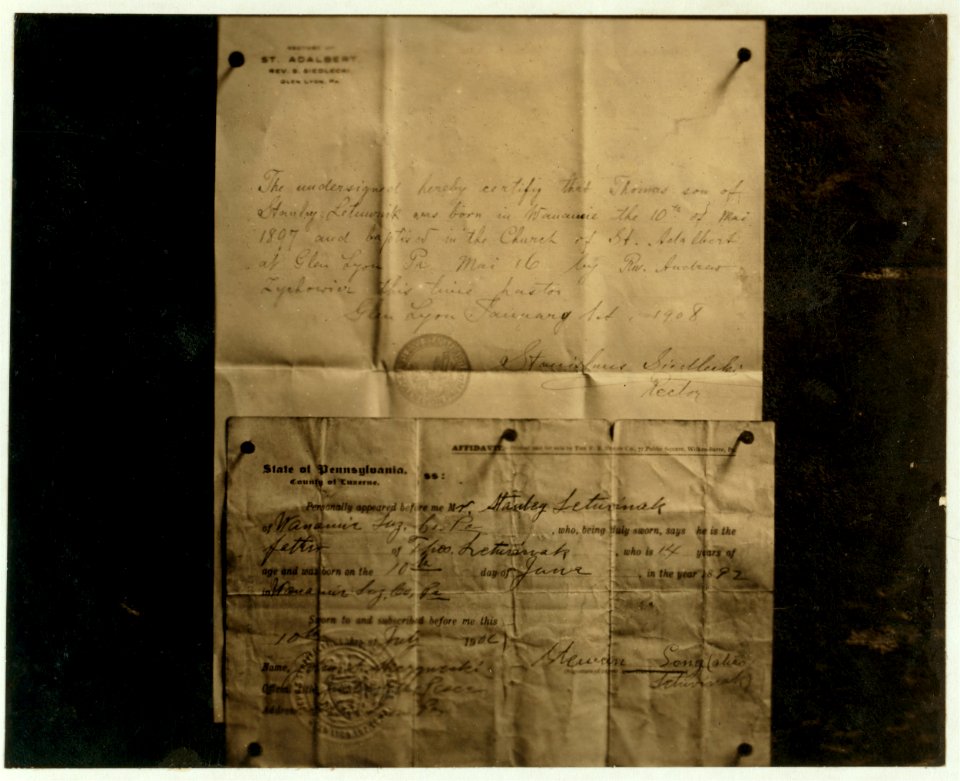 RECTORY OF
ST. ADALBERT
REV. S. SIEDLECKI
GLEN LYON, PA.
The undersigned hereby certify that Thomas son of
Stanley Letuwnik was born in Wanamie the 10th of Mai
1897 and baptised in the Church of St. Adalbert
at Glen Lyon Pa Mai 16 by Rev. Andrew
this time pastor
Glen Lyon January 1st, 1908
Stanislaus Siedlecki
Rector
AFFIDAVIT. Public Square, Wilkes-Barre, Pa.
State of Pennsylvania,
County of Luzerne. ss:
Personally appeared before me Mr. Stanley Letuwnak
of Wanamie Luz. Co. Pa , who, being duly sworn, says he is the
father of Theo. Letuwnak , who is 14 years of
age and was born on the 10th day of June , in the year 1892
in Wanamie Luz. Co. Pa
Sworn to and subscribed before me this
10th day of July 1906
Name,
Official Title, of the Peace
Address, Pa.